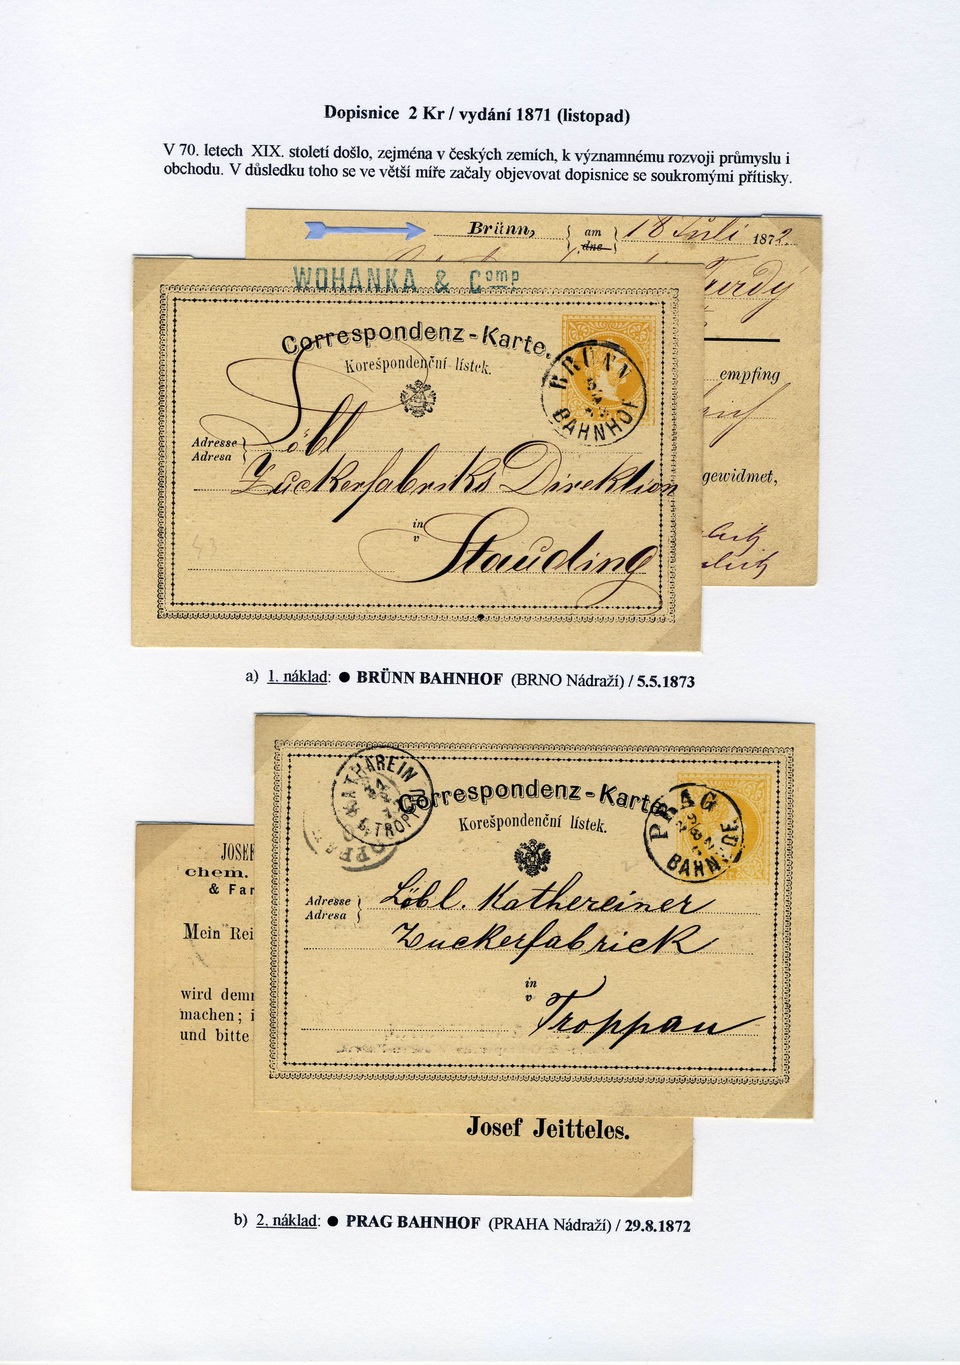 Dopisnice 2 Kr / vydání 1871 (listopad)
V 70. letech XIX. století došlo, zejména v českých zemích, k významnému rozvoji průmyslu i
obchodu. V důsledku toho se ve větší míře začaly objevovat dopisnice se soukromými přítisky.
Brünn, am 18 Juli 1872.
dne
WOHANKA & Comp
Correspondenz-Karte.
Korešpondenční lístek.
BRÜNN
BAHNHOF
empfing
Adresse
Adresa
Löbl
Zuckerfabriks Direktion
gewidmet,
in
v
Stauding
a) 1. náklad: ● BRÜNN BAHNHOF (BRNO Nádraží) / 5.5.1873
KATHAREIN
b/TROPPAU
Correspondenz-Karte.
Korešpondenční lístek.
PRAG
29/8
BAHNHOF.
JOSEF
chem.
& Far
Adresse
Adresa
Löbl. Kathereiner
Zuckerfabrick
Mein Rei
in
v
Troppau
wird demn
machen; i
und bitte
Josef Jeitteles.
b) 2. náklad: ● PRAG BAHNHOF (PRAHA Nádraží) / 29.8.1872